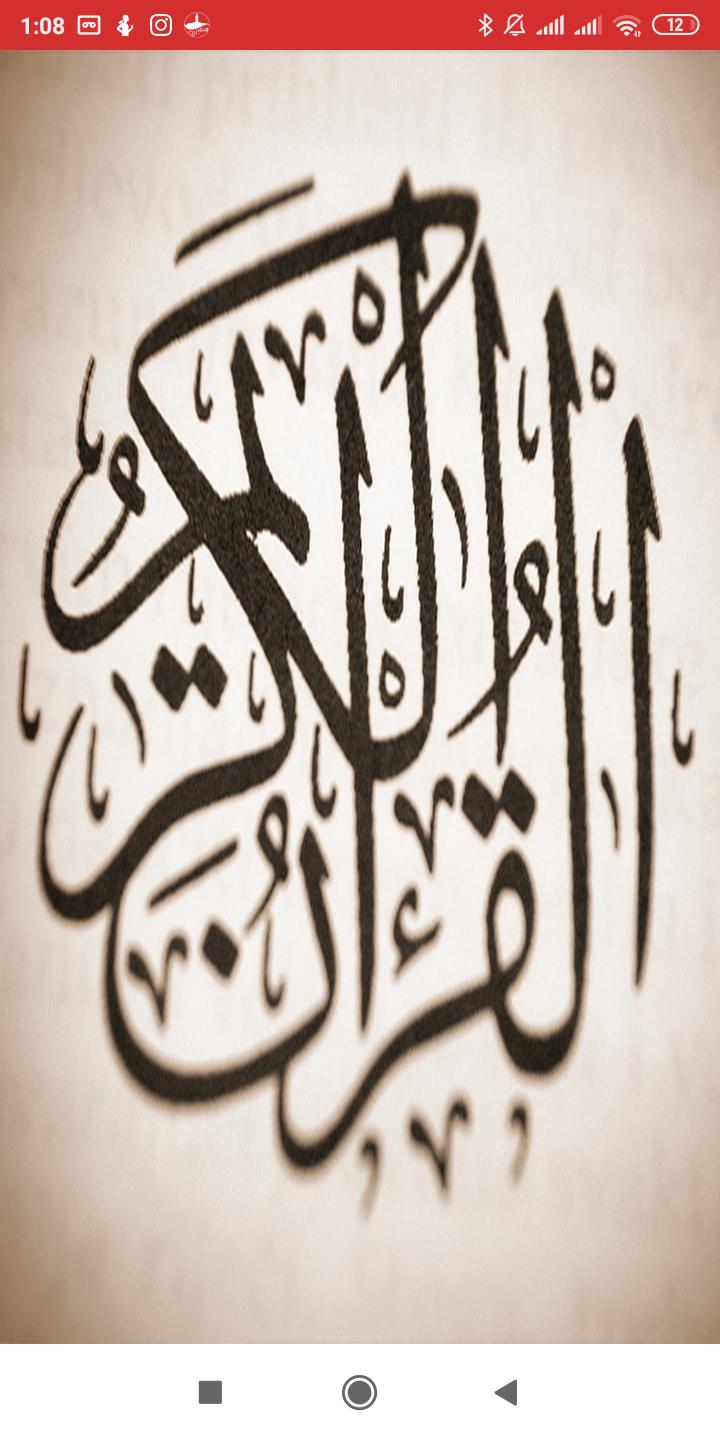 1:08
12
القرآن الكريم